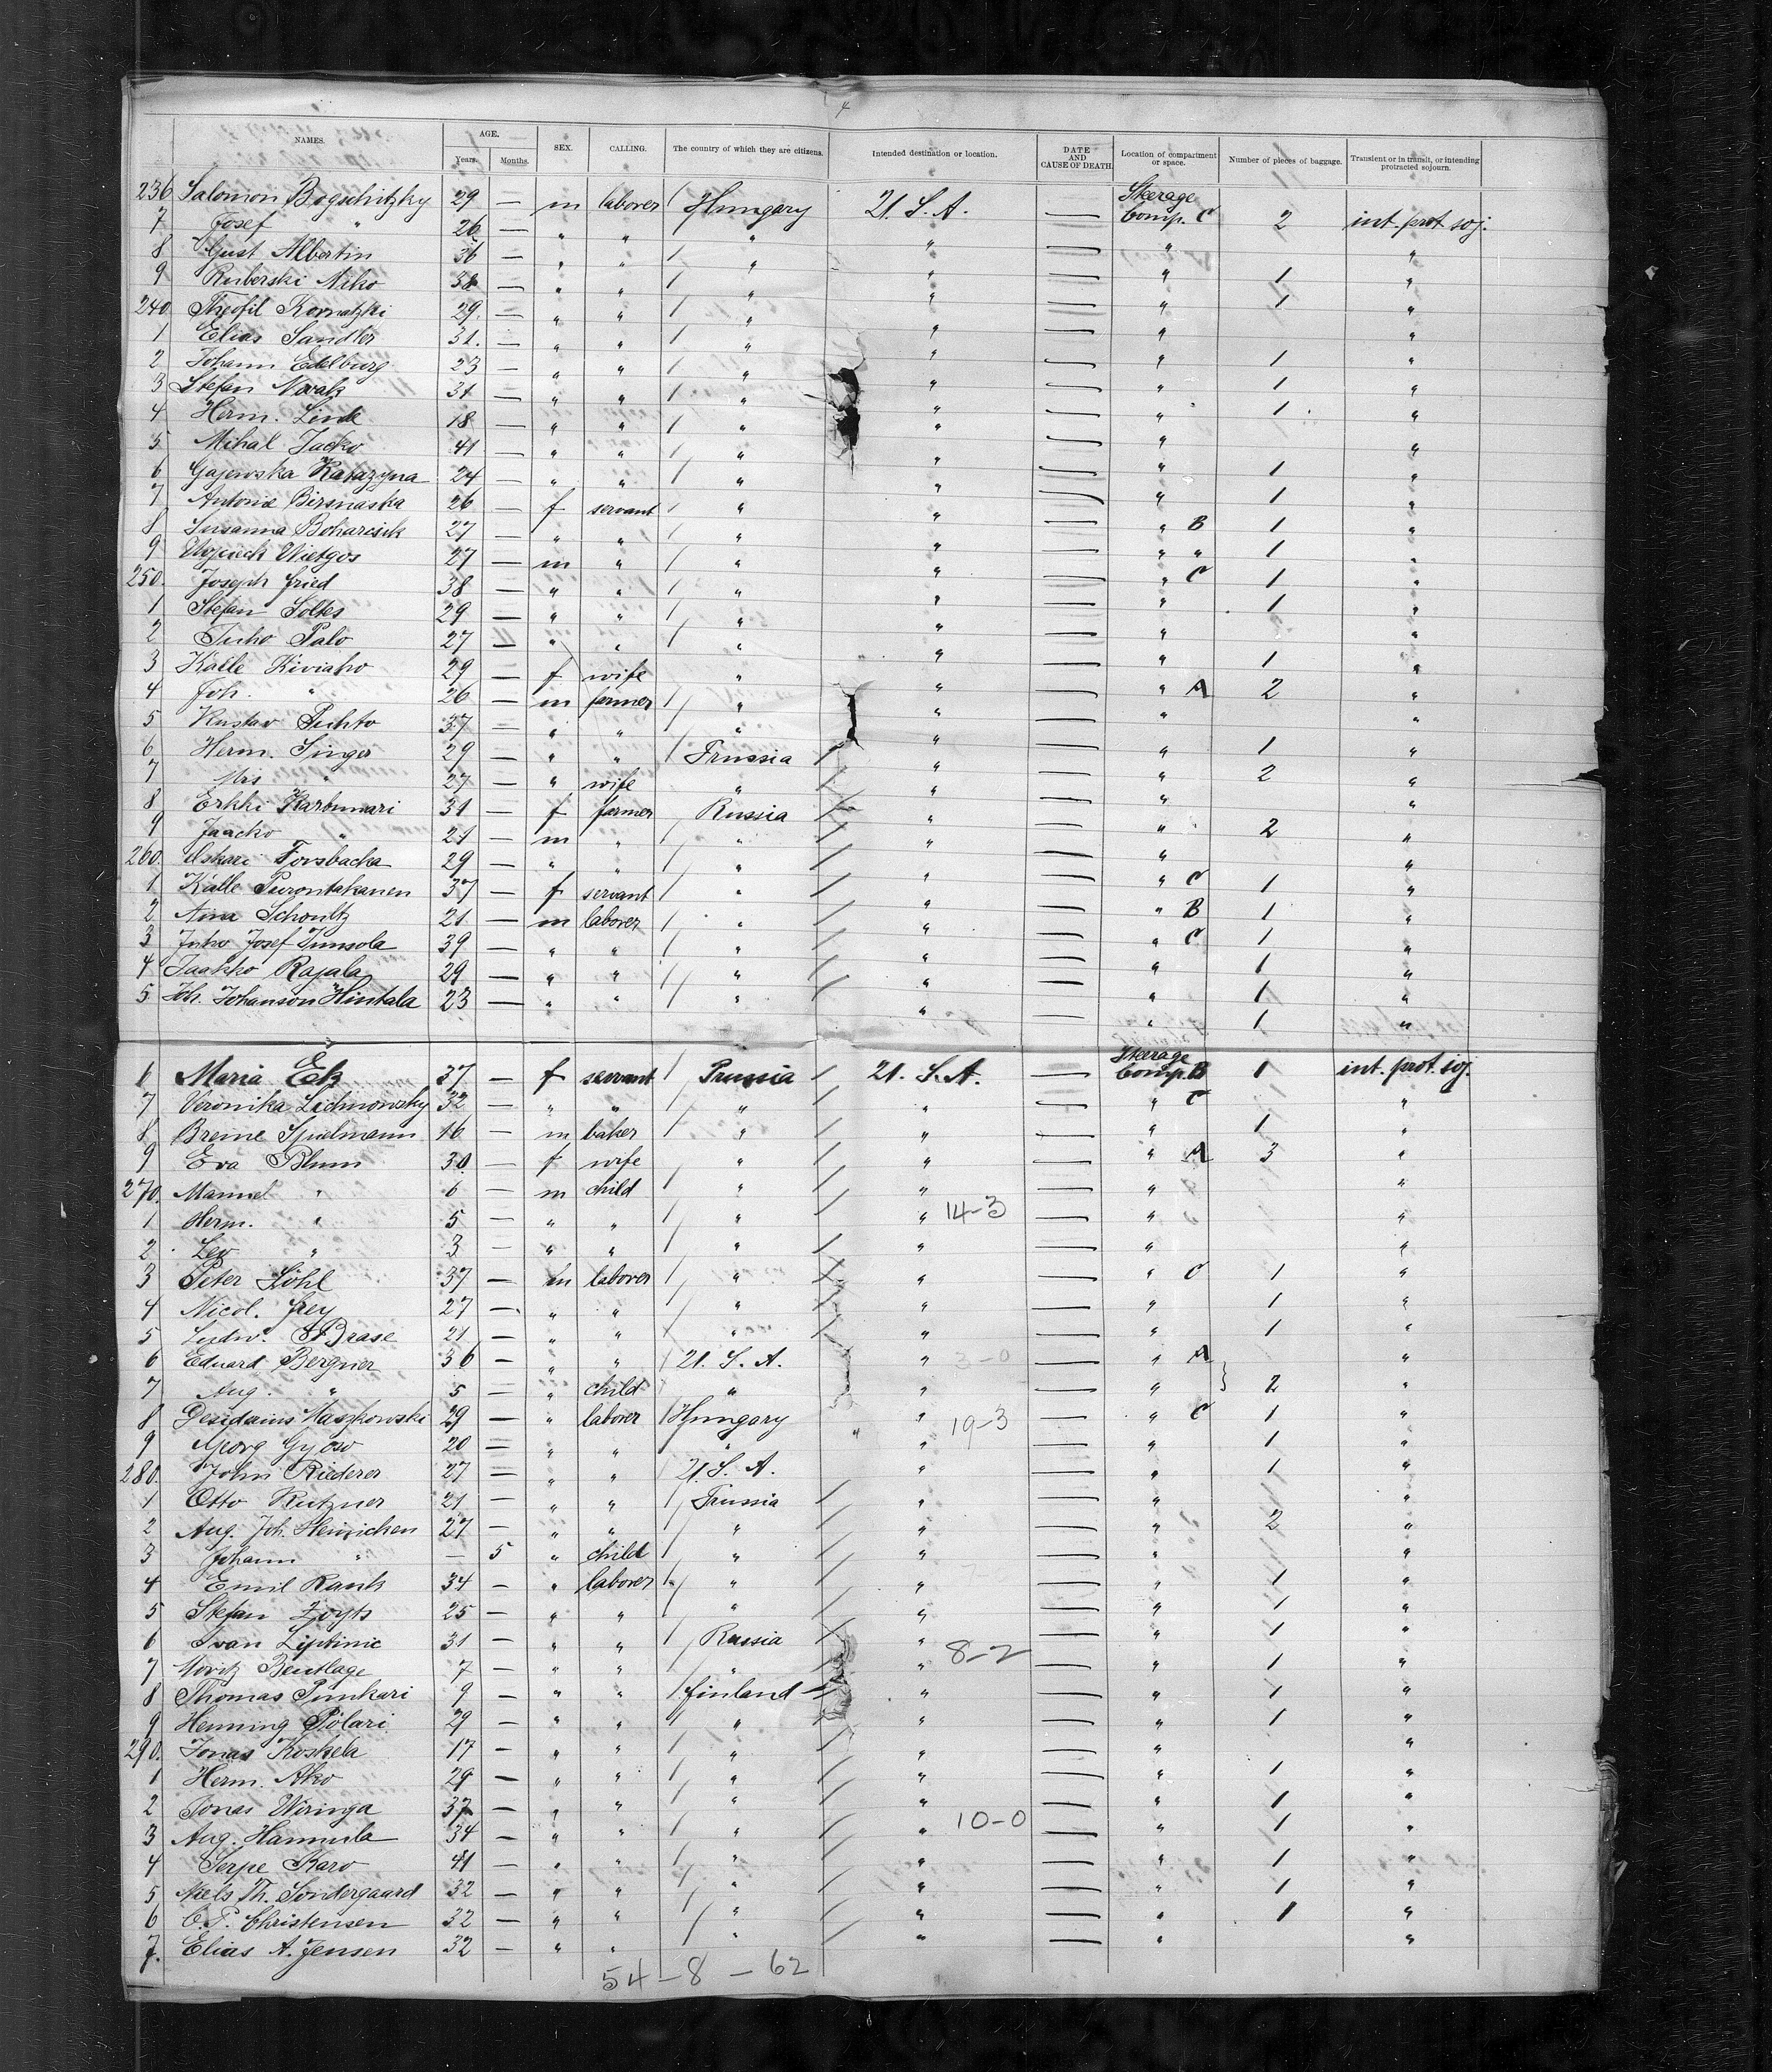 4
NAMES. AGE. Years. Months. SEX. CALLING. The country of which they are citizens. Intended destination or location. DATE AND CAUSE OF DEATH. Location of compartment or space. Number of pieces of baggage. Transient or in transit, or intending protracted sojourn.
236 Salomon Bogschitzky 29 — m laborer Hungary U.S.A. — Steerage Comp. C 2 int. prot soj.
7 Josef " 26 — " " " " — " "
8 Gust Albertin 36 — " " " " — " 1 "
9 Ruberski Miko 38 — " " " " — " 1 "
240. Theofil Kornatzki 29. — " " " " — " "
1 Elias Sandler 31. — " " " " — " 1 "
2 Johann Edelburg 23 — " " " " — " 1 "
3 Stefan Novak 31 — " " " " — " 1 "
4 Herm. Linde 18 — " " " " — " "
5 Mihal Jacko 41 — " " " " — " 1 "
6 Gajewska Katazyna 24 — " " " " — " 1 "
7 Antonie Birsnaska 26 — f servant " " — " B 1 "
8 Susanna Boharcsik 27 — " " " " — " " 1 "
9 Wojciech Wietgos 27 — m " " " — " C 1 "
250. Joseph Fried 38 — " " " " — " 1 "
1 Stefan Soltes 29 — " " " " — " "
2 Juho Palo 27 — " " " " — " 1 "
3 Kalle Kiviaho 29 — f wife " " — " A 2 "
4 Joh. " 26 — m farmer " " — " "
5 Kustav Puhto 37 — " " " " — " 1 "
6 Herm. Singer 29 — " " Prussia " — " 2 "
7 Mrs " 27 — " wife " " — " "
8 Erkki Karbumari 31 — f farmer Russia " — " 2 "
9 Jaacko " 21 — m " " " — " "
260. Oskari Forsbacka 29 — " " " " — " C 1 "
1 Kalle Purontakanen 37 — f servant " " — " B 1 "
2 Aina Schoultz 21 — m laborer " " — " C 1 "
3 Juho Josef Junsola 39 — " " " " — " 1 "
4 Jaakko Rajala 29 — " " " " — " 1 "
5 Joh. Johanson Hintala 23 — " " " " — " 1 "
6 Maria Ek 37 — f servant Prussia U.S.A. — Steerage Comp. B 1 int. prot. soj.
7 Veronika Lichnowsky 32 — " " " " — " C "
8 Breine Spielmann 16 — m baker " " — " 1 "
9 Eva Blum 30. — f wife " " — " A 3 "
270. Manuel " 6 — m child " " — " "
1 Herm. " 5 — " " " " 14-3 — " "
2 Leo " 3 — " " " " — " "
3 Peter Löhl 37 — m laborer " " — " C 1 "
4 Nicol. Frey 27 — " " " " — " 1 "
5 Ludw. Brase 21 — " " " " — " 1 "
6 Eduard Bergner 36 — " " U.S.A. " 3-0 — " A "
7 Aug. " 5 — " child " " — " 2 "
8 Desiderius Maszkowski 29 — " laborer Hungary " 19-3 — " C 1 "
9 Gyorg 20 — " " " " — " 1 "
280. John Riederer 27 — " " U.S.A. " — " 1 "
1 Otto Rutzner 21 — " " Prussia " — " "
2 Aug. Joh. Heinichen 27 — " " " " — " 2 "
3 Johann " — 5 " child " " — " "
4 Emil Rank 34 — " laborer " " — " 1 "
5 Stefan Zoyts 25 — " " " " — " 1 "
6 Ivan Liptinic 31 — " " Russia " 8-2 — " 1 "
7 Moritz Bentlage 7 — " " " " — " 1 "
8 Thomas Punkari 9 — " " Finland " — " 1 "
9 Henning Pölari 29 — " " " " — " 1 "
290. Jonas Koskela 17 — " " " " — " "
1 Herm. Ako 29 — " " " " — " 1 "
2 Jonas Wiringa 37 — " " " " — " 1 "
3 Aug. Hannula 34 — " " " " 10-0 — " 1 "
4 Serpe Karo 41 — " " " " — " 1 "
5 Niels Th. Sondergaard 32 — " " " " — " 1 "
6 C.P. Christensen 32 — " " " " — " 1 "
7. Elias A. Jensen 32 — " " " " — " "
54 — 8 — 62